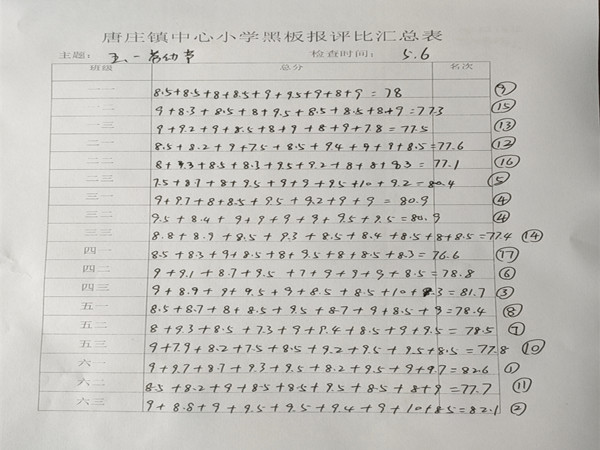 唐庄镇中心小学黑板报评比汇总表
主题: 五、一劳动节 检查时间: 5.6
班级 总分 名次
一一 8.5+8.5+8+8.5+9+9.5+9+8+9=78 ⑨
一二 9+8.3+8.5+8+9.5+8.5+8.5+8+9=77.3 ⑮
一三 9+9.2+9+8.5+8+9+8+9+7.8=77.5 ⑬
二一 8.5+8.2+9+7.5+8.5+9.4+9+9+8.5=77.6 ⑫
二二 8+9.3+8.5+8.3+9.5+9.2+8+8+8.3=77.1 ⑯
二三 7.5+8.7+8+9.5+9+9+9.5+10+9.2=80.4 ⑤
三一 9+9.7+8+8.5+9.5+9.2+9+9 =80.9 ④
三二 9.5+8.4+9+9+9+9+9.5+9.5=80.9 ④
三三 8.8+8.9+8.5+9.3+8.5+8.4+8.5+8+8.5=77.4 ⑭
四一 8.5+8.3+9+8.5+8+9.5+8+8.5+8.3=76.6 ⑰
四二 9+9.1+8.7+9.5+7+9+9+9+8.5=78.8 ⑥
四三 9+8.9+9+9.5+9+8.5+8.5+10+9.3=81.7 ③
五一 8.5+8.7+8+8.5+9.5+8.7+9+8.5+9=78.4 ⑧
五二 8+9.3+8.5+7.3+9+9.4+8.5+9+9.5=78.5 ⑦
五三 9+7.9+8.2+7.5+8.5+9.2+9.5+9.5+8.5=77.8 ⑩
六一 9+9.7+8.7+9.3+9.5+8.2+9.5+9+9.7=82.6 ①
六二 8.5+8.2+9+8.5+8.5+9.5+8.5+8+9=77.7 ⑪
六三 9+8.8+9+9.5+9.5+9.4+9+10+8.5=82.1 ②